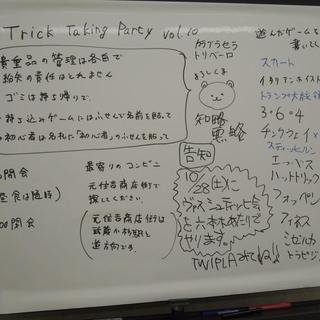 Trick Taking Party vol.10
貴重品の管理は各自で
紛失の責任はとれません
ゴミは持ち帰りで
持ち込みのゲームにはふせんで名前を貼って
初心者は名札に「初心者」のふせんを貼って
開会
昼食は随時)
00閉会
最寄りのコンビニ
元住吉商店街で
探してください。
元住吉商店街は
武蔵小杉駅と
逆方向です。
カラブラセラ
トリペーロ
よろしくま
知略
黒略
告知
10/28(土)に
ヴァスシュティッヒ会
を六本木あたりで
やります。
TWIPLA
遊んだゲームを
書いて
スカート
イタリアンホイスト
トランプ大統領
3・6・4
スティッヒルン
エッペス
ハットトリック
フォッペン
フィネス
ミゼルカ
トラピゾ